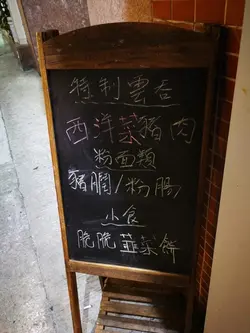 特制雲吞
西洋菜豬肉
粉面類
豬膶/粉腸
小食
脆脆韮菜餅